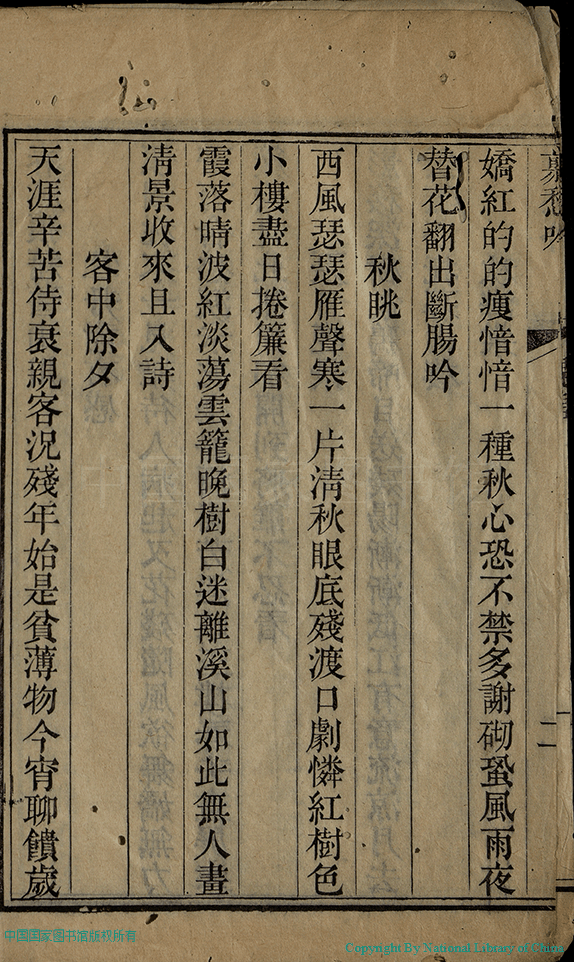 嬌紅的的瘦愔愔一種秋心恐不禁多謝砌蛩風雨夜
替花翻出斷腸吟
秋眺
西風瑟瑟雁聲寒一片清秋眼底殘渡口劇憐紅樹色
小樓盡日捲簾看
霞落晴波紅淡蕩雲籠晚樹白迷離溪山如此無人畫
淸景收來且入詩
客中除夕
天涯辛苦侍衰親客況殘年始是貧薄物今宵聊饋歲
二
中国国家图书馆版权所有
Copyright By National Library of China